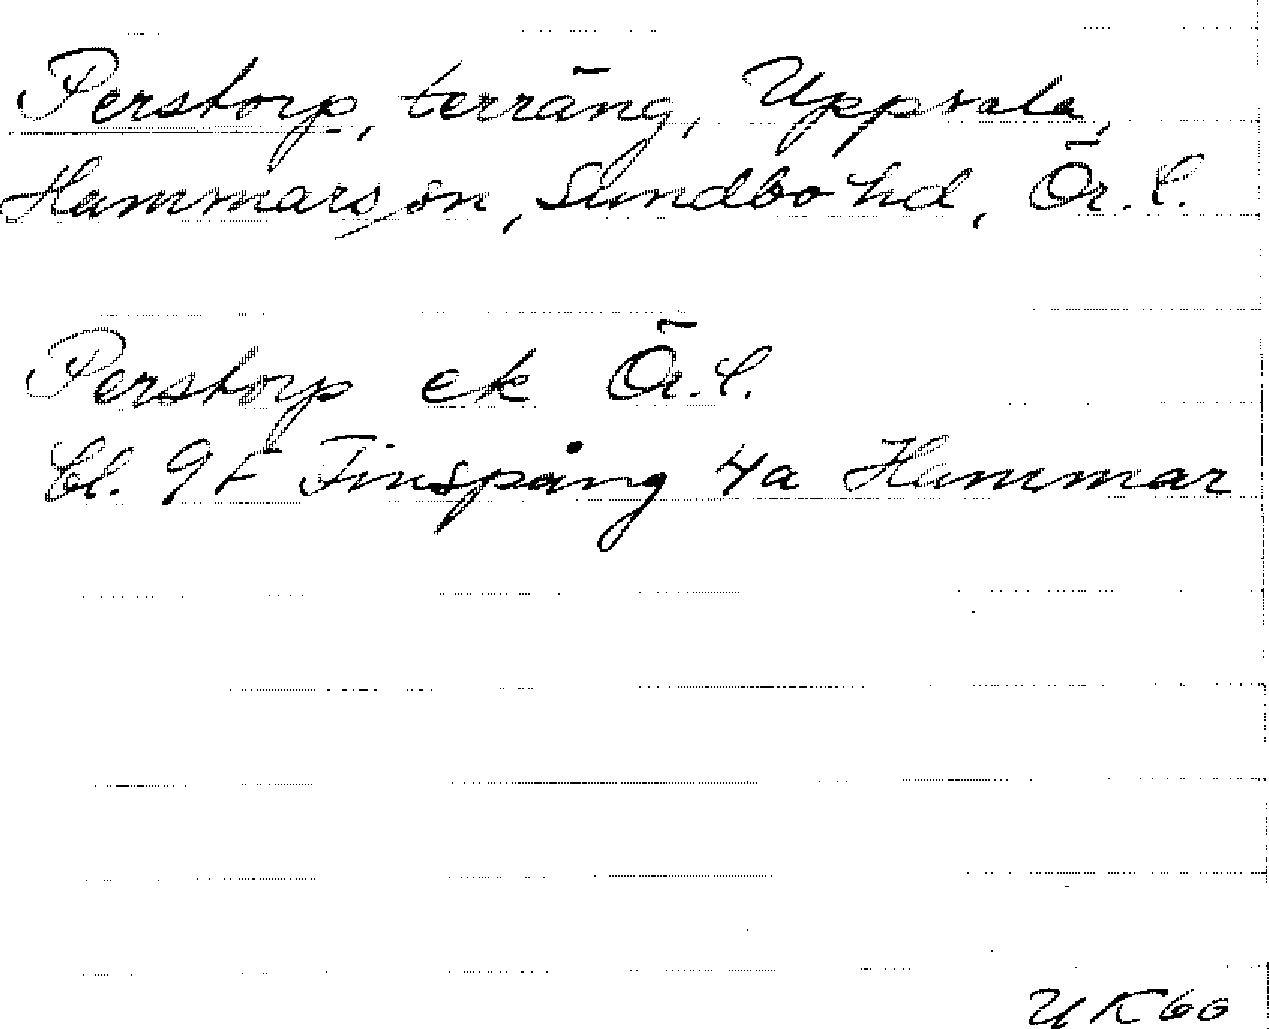 Perstorp, terräng, Uppsala,
Hammars sn, Sundbo hd, Ör. l.
Perstorp ek Ör. l.
bl. 9F Finspång 4a Hammar
UK60